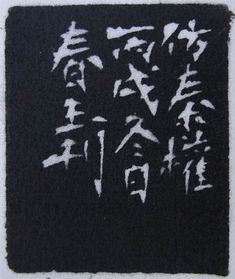 仿秦權
丙戌冬日
春玉刊